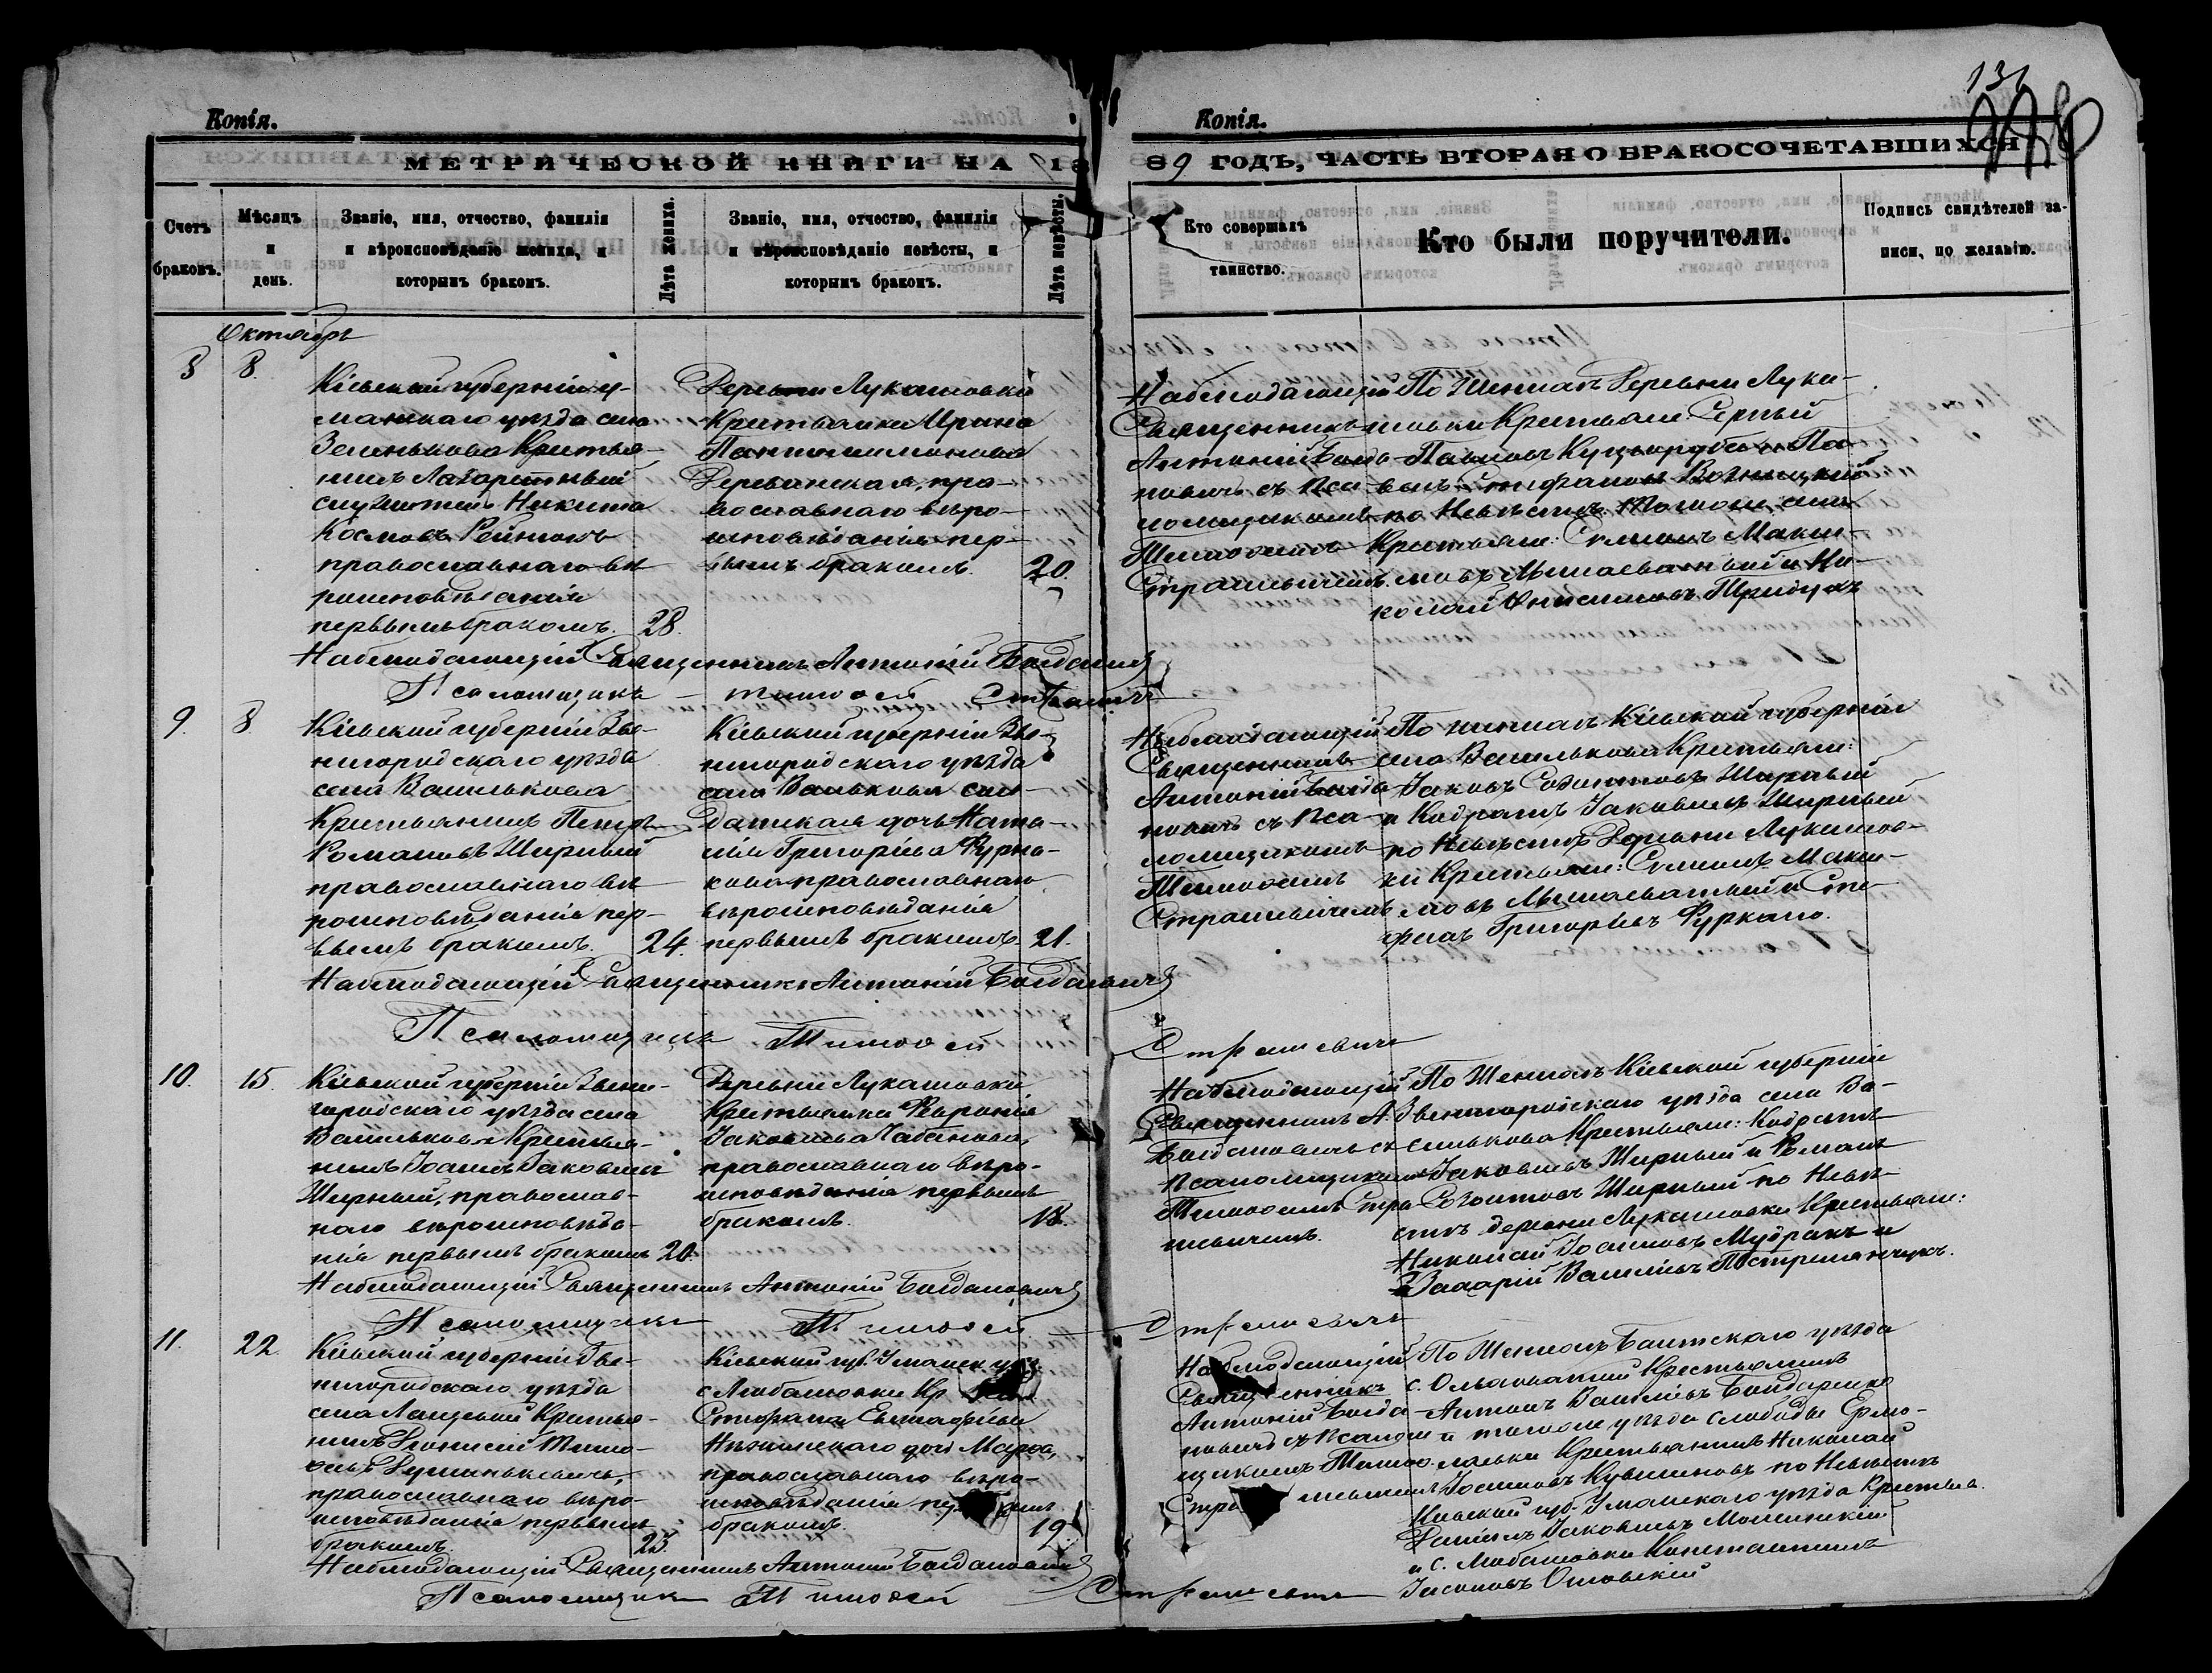 131
228
Копія.
Копія.
МЕТРИЧЕСКОЙ КНИГИ НА 18
89 ГОДЪ, ЧАСТЬ ВТОРАЯ О БРАКОСОЧЕТАВШИХСЯ
Счетъ
браковъ.
Мѣсяцъ
и
день.
Званіе, имя, отчество, фамилія
и вѣроисповѣданіе жениха, и
которымъ бракомъ.
Лѣта жениха.
Званіе, имя, отчество, фамилія
и вѣроисповѣданіе невѣсты, и
которымъ бракомъ.
Лѣта невѣсты.
Кто совершалъ
таинство.
Кто были поручители.
Подпись свидѣтелей за-
писи, по желанію.
Октябрь
8 8.
Кіевской губерніи у-
манскаго уѣзда села
Зеленькова Крестья-
нинъ Лазаретный
служитель Никита
Космовъ
православнаго вѣ
роисповѣданія
первымъ бракомъ. 28.
Деревни Лукашовки
Крестьянка Ирина
Пантелимонова
Деревянская, пра-
вославнаго вѣро-
исповѣданія пер-
вымъ бракомъ. 20.
Наблюдающій
Священникъ
Антоній Богда-
новичъ съ Пса-
ломщикомъ
Тимофеемъ
Страшевичемъ.
По Женихѣ Деревни Лука-
шовки Крестьяне: Сергый
Павловъ и Па-
велъ Стефановъ
по Невѣстѣ: Тойже села
Крестьяне: Симеонъ Макси-
мовъ и Ни-
колай Онисимовъ
Наблюдающій Священникъ Антоній Богдановичъ
Псаломщикъ Тимофей Страшевичъ
9. 8
Кіевской губерніи Зве-
нигородскаго уѣзда
села Василькова
Крестьянинъ Петръ
Романовъ Ширный
православнаго вѣ
роисповѣданія пер-
вымъ бракомъ. 24.
Кіевской губерніи Зве-
нигородскаго уѣзда
села Василькова сол-
датская дочь Ната-
лія Григоріева Фурка-
лова православнаго
вѣроисповѣданія
первымъ бракомъ. 21.
Наблюдающій
Священникъ
Антоній Богда-
новичъ съ Пса-
ломщикомъ
Тимофеемъ
Страшевичемъ
По женихѣ Кіевской губерніи
села Василькова Крестьяне:
Іаковъ Созонтовъ Ширный
и Кодратъ Іаковлевъ Ширный
по Невѣстѣ Деревни Лукашов-
ки Крестьяне: Симеонъ Макси-
мовъ и Сте-
фанъ Григоріевъ Фуркало.
Наблюдающій Священникъ Антоній Богдановичъ
Псаломщикъ Тимофей Страшевичъ
10. 15.
Кіевской губерніи Звени-
городскаго уѣзда села
Василькова Крестья-
нинъ Іоаннъ Іаковлевъ
Ширный, православ-
наго вѣроисповѣда-
нія первымъ бракомъ 20.
Деревни Лукашовки
Крестьянка Февронія
Іаковлева Чабанова,
православнаго вѣро-
исповѣданія первымъ
бракомъ. 18.
Наблюдающій
Священникъ А.
Богдановичъ съ
Псаломщикомъ
Тимофеемъ Стра
шевичемъ.
По Женихѣ Кіевской губерніи
Звенигородскаго уѣзда села Ва-
силькова Крестьяне: Кодратъ
Іаковлевъ Ширный и Романъ
Созонтовъ Ширный по Невѣ-
стѣ деревни Лукашовки Крестьяне:
Николай Іоанновъ Мудракъ и
Захарій Василіевъ
Наблюдающій Священникъ Антоній Богдановичъ
Псаломщикъ Тимофей Страшевичъ
11. 22.
Кіевской губерніи Зве-
нигородскаго уѣзда
села Лащевой Крестья-
нинъ Діонисій Тимо-
феевъ
православнаго вѣро-
исповѣданія первымъ
бракомъ. 23.
Кіевской губ. Уманск. уѣз.
с. Любашовки Кр
Стефана Евстафіева
Нѣжинскаго дочь Марѳа,
православнаго вѣро-
исповѣданія первымъ
бракомъ. 19.
Наблюдающій
Священникъ
Антоній Богда-
новичъ съ Псалом
щикомъ Тимоф.
Страшевичемъ
По Женихѣ Балтскаго уѣзда
с. Ольховатой Крестьянинъ
Антонъ Василіевъ Бондаренко
и тогоже уѣзда слободы Ермо-
лаевки Крестьянинъ Николай
Іоанновъ по Невѣстѣ
Кіевской губ. Уманскаго уѣзда Крестьян.
Даніилъ Іаковлевъ
и с. Любашовки Константинъ
Іасоновъ
Наблюдающій Священникъ Антоній Богдановичъ
Псаломщикъ Тимофей Страшевичъ